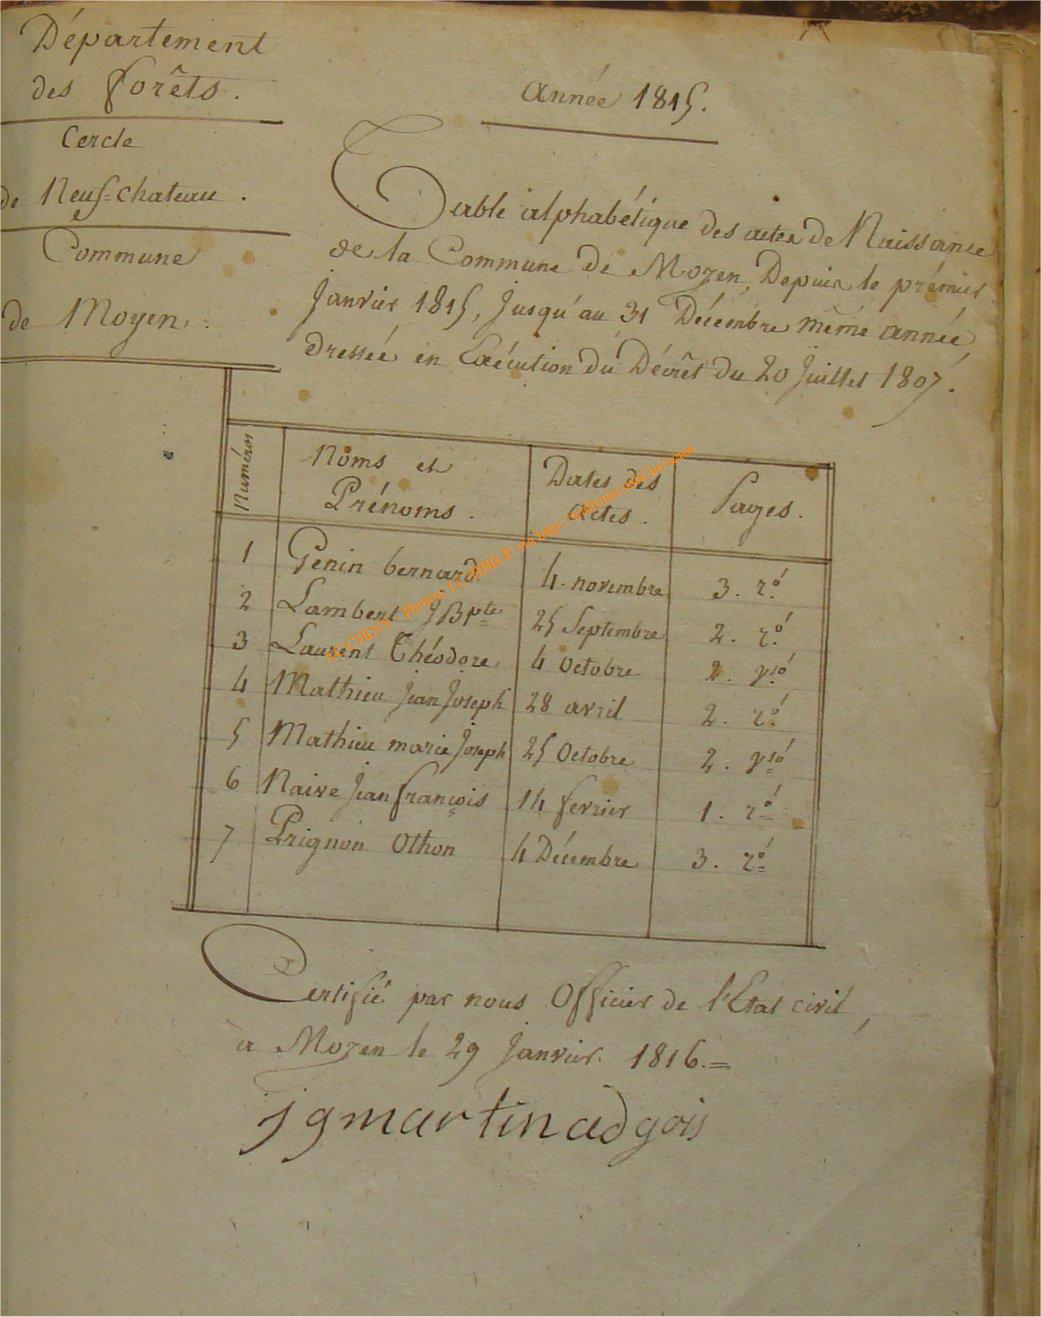 Département
des forêts.
Cercle
de Neuf=Chateau.
Commune
de Moyen.
Année 1815.
Table alphabétique des actes de Naissance
de la Commune de Moyen, Depuis le prémier
Janvier 1815, Jusqu'au 31 Décembre même année,
dressée en Exécution du Décrêt du 20 Juillet 1807.
Numéros
Noms et
Prénoms.
Dates des
Actes.
Pages.
1 Genin bernard 4. novembre 3. ro
2 Lambert JBpte 25 Septembre 2. ro
3 Laurent Théodore 4 Octobre 2. vso
4 Mathieu Jean Joseph 28 avril 2. ro
5 Mathieu marie Joseph 25 Octobre 2. vso
6 Naive Jean françois 14 fevrier 1. ro
7 Prignon Othon 4 Décembre 3. ro
Certifié par nous Officier de l'État civil,
à Moyen le 29 Janvier 1816.=
j g martin adgois